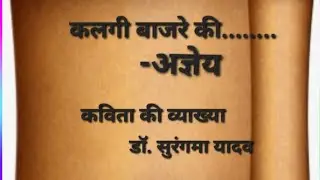 कलगी बाजरे की........
-अज्ञेय
कविता की व्याख्या
डॉ. सुरंगमा यादव